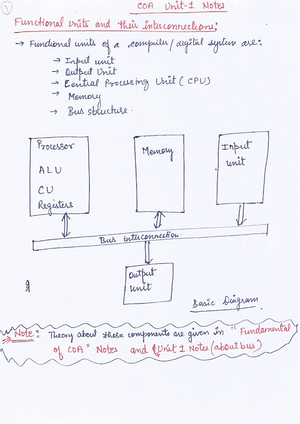 1
COA Unit-1 Notes
Functional units and their interconnections:
→ Functional units of a computer/digital system are:
→ Input unit
→ Output Unit
→ Central Processing Unit (CPU)
→ Memory
→ Bus structure.
Processor
ALU
CU
Registers
Memory
Input
unit
Bus interconnection
Output
unit
Basic Diagram
Note: Theory about these components are given in "Fundamental
of COA" Notes and Unit 1 Notes (about bus)